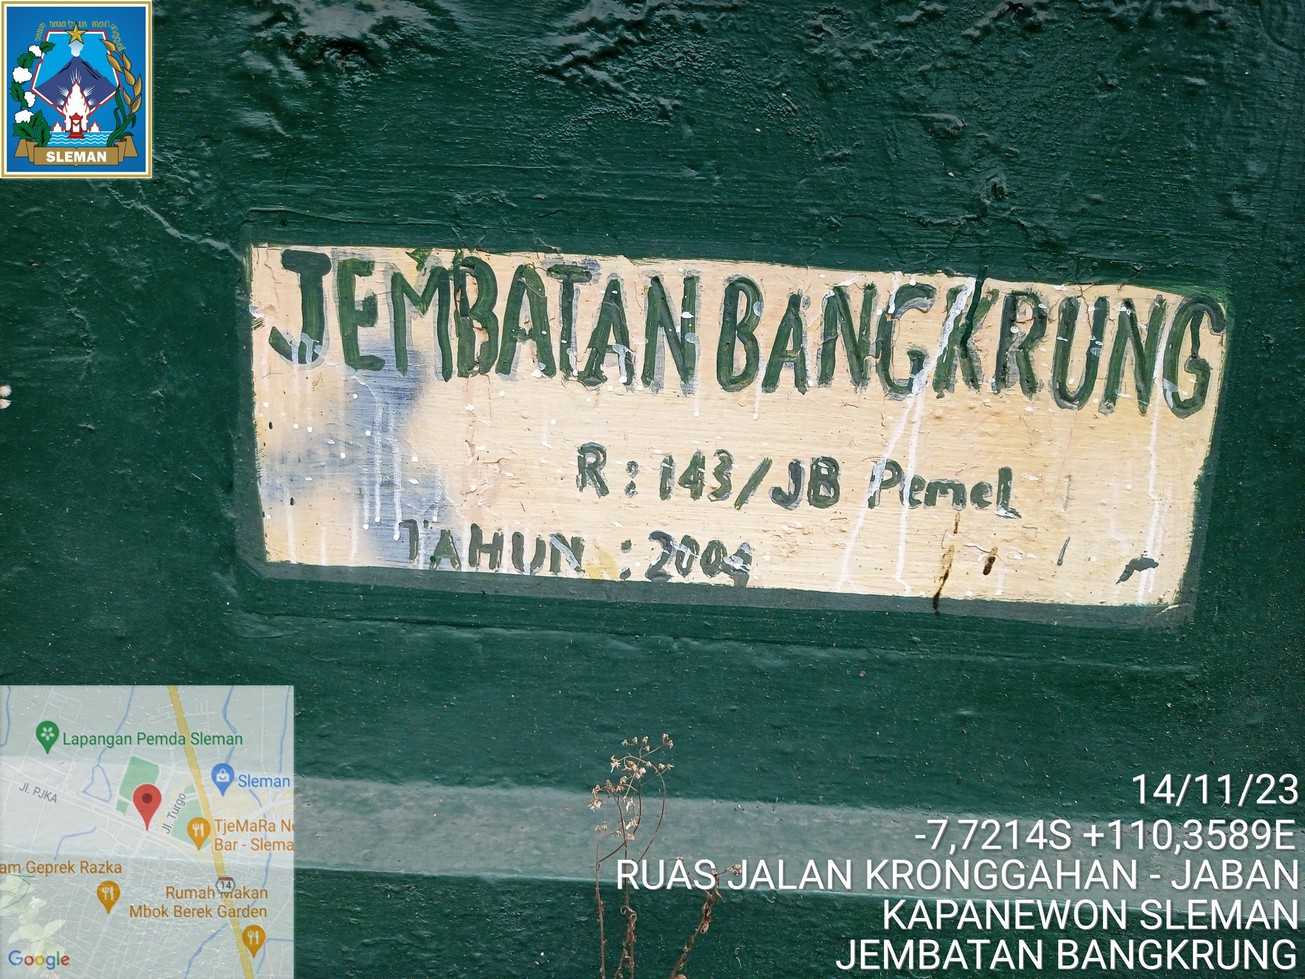 SLEMAN
JEMBATAN BANGKRUNG
R : 143/JB Pemel
TAHUN : 2004
Lapangan Pemda Sleman
Jl. PJKA
Jl. Turgo
Sleman
TjeMaRa
Bar - Slema
am Geprek Razka
14
Rumah Makan
Mbok Berek Garden
Google
14/11/23
-7,7214S +110,3589E
RUAS JALAN KRONGGAHAN - JABAN
KAPANEWON SLEMAN
JEMBATAN BANGKRUNG